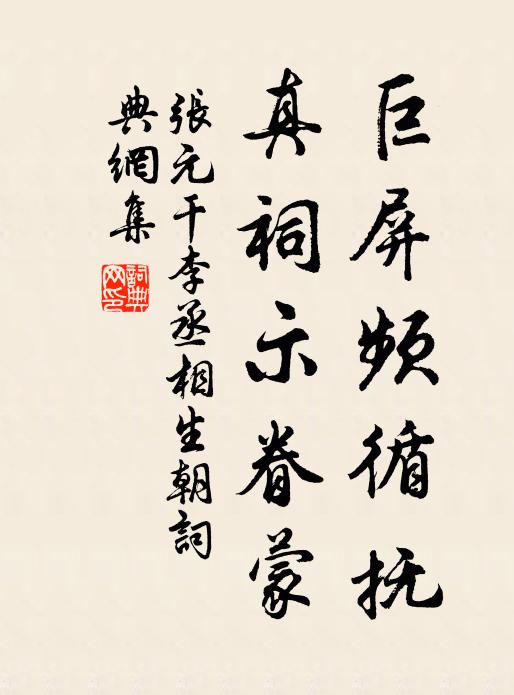 巨屏频循抚
真祠示眷蒙
張元干李丞相生朝詞
典網集
詞典网印